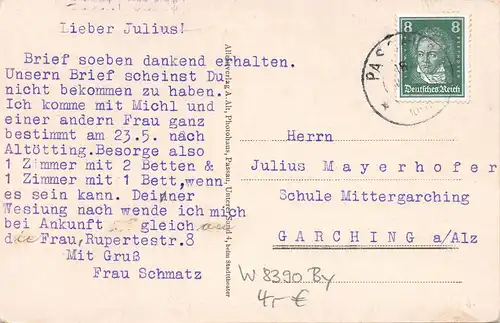 Lieber Julius!
Brief soeben dankend erhalten.
Unsern Brief scheinst Du
nicht bekommen zu haben.
Ich komme mit Michl und
einer andern Frau ganz
bestimmt am 23.5. nach
Altötting. Besorge also
1 Zimmer mit 2 Betten &
1 Zimmer mit 1 Bett, wenn
es sein kann. Deiner
Wesiung nach wende ich mich
bei Ankunft gleich an
die Frau, Rupertestr.8
Mit Gruß
Frau Schmatz
Alleinverlag A. Alt, Photohaus, Passau, Unterer Sand 4, beim Stadttheater
8 8
Deutsches Reich
PASS
Herrn
Julius Mayerhofer
Schule Mittergarching
GARCHING a/Alz
W 8390 By
4,- €